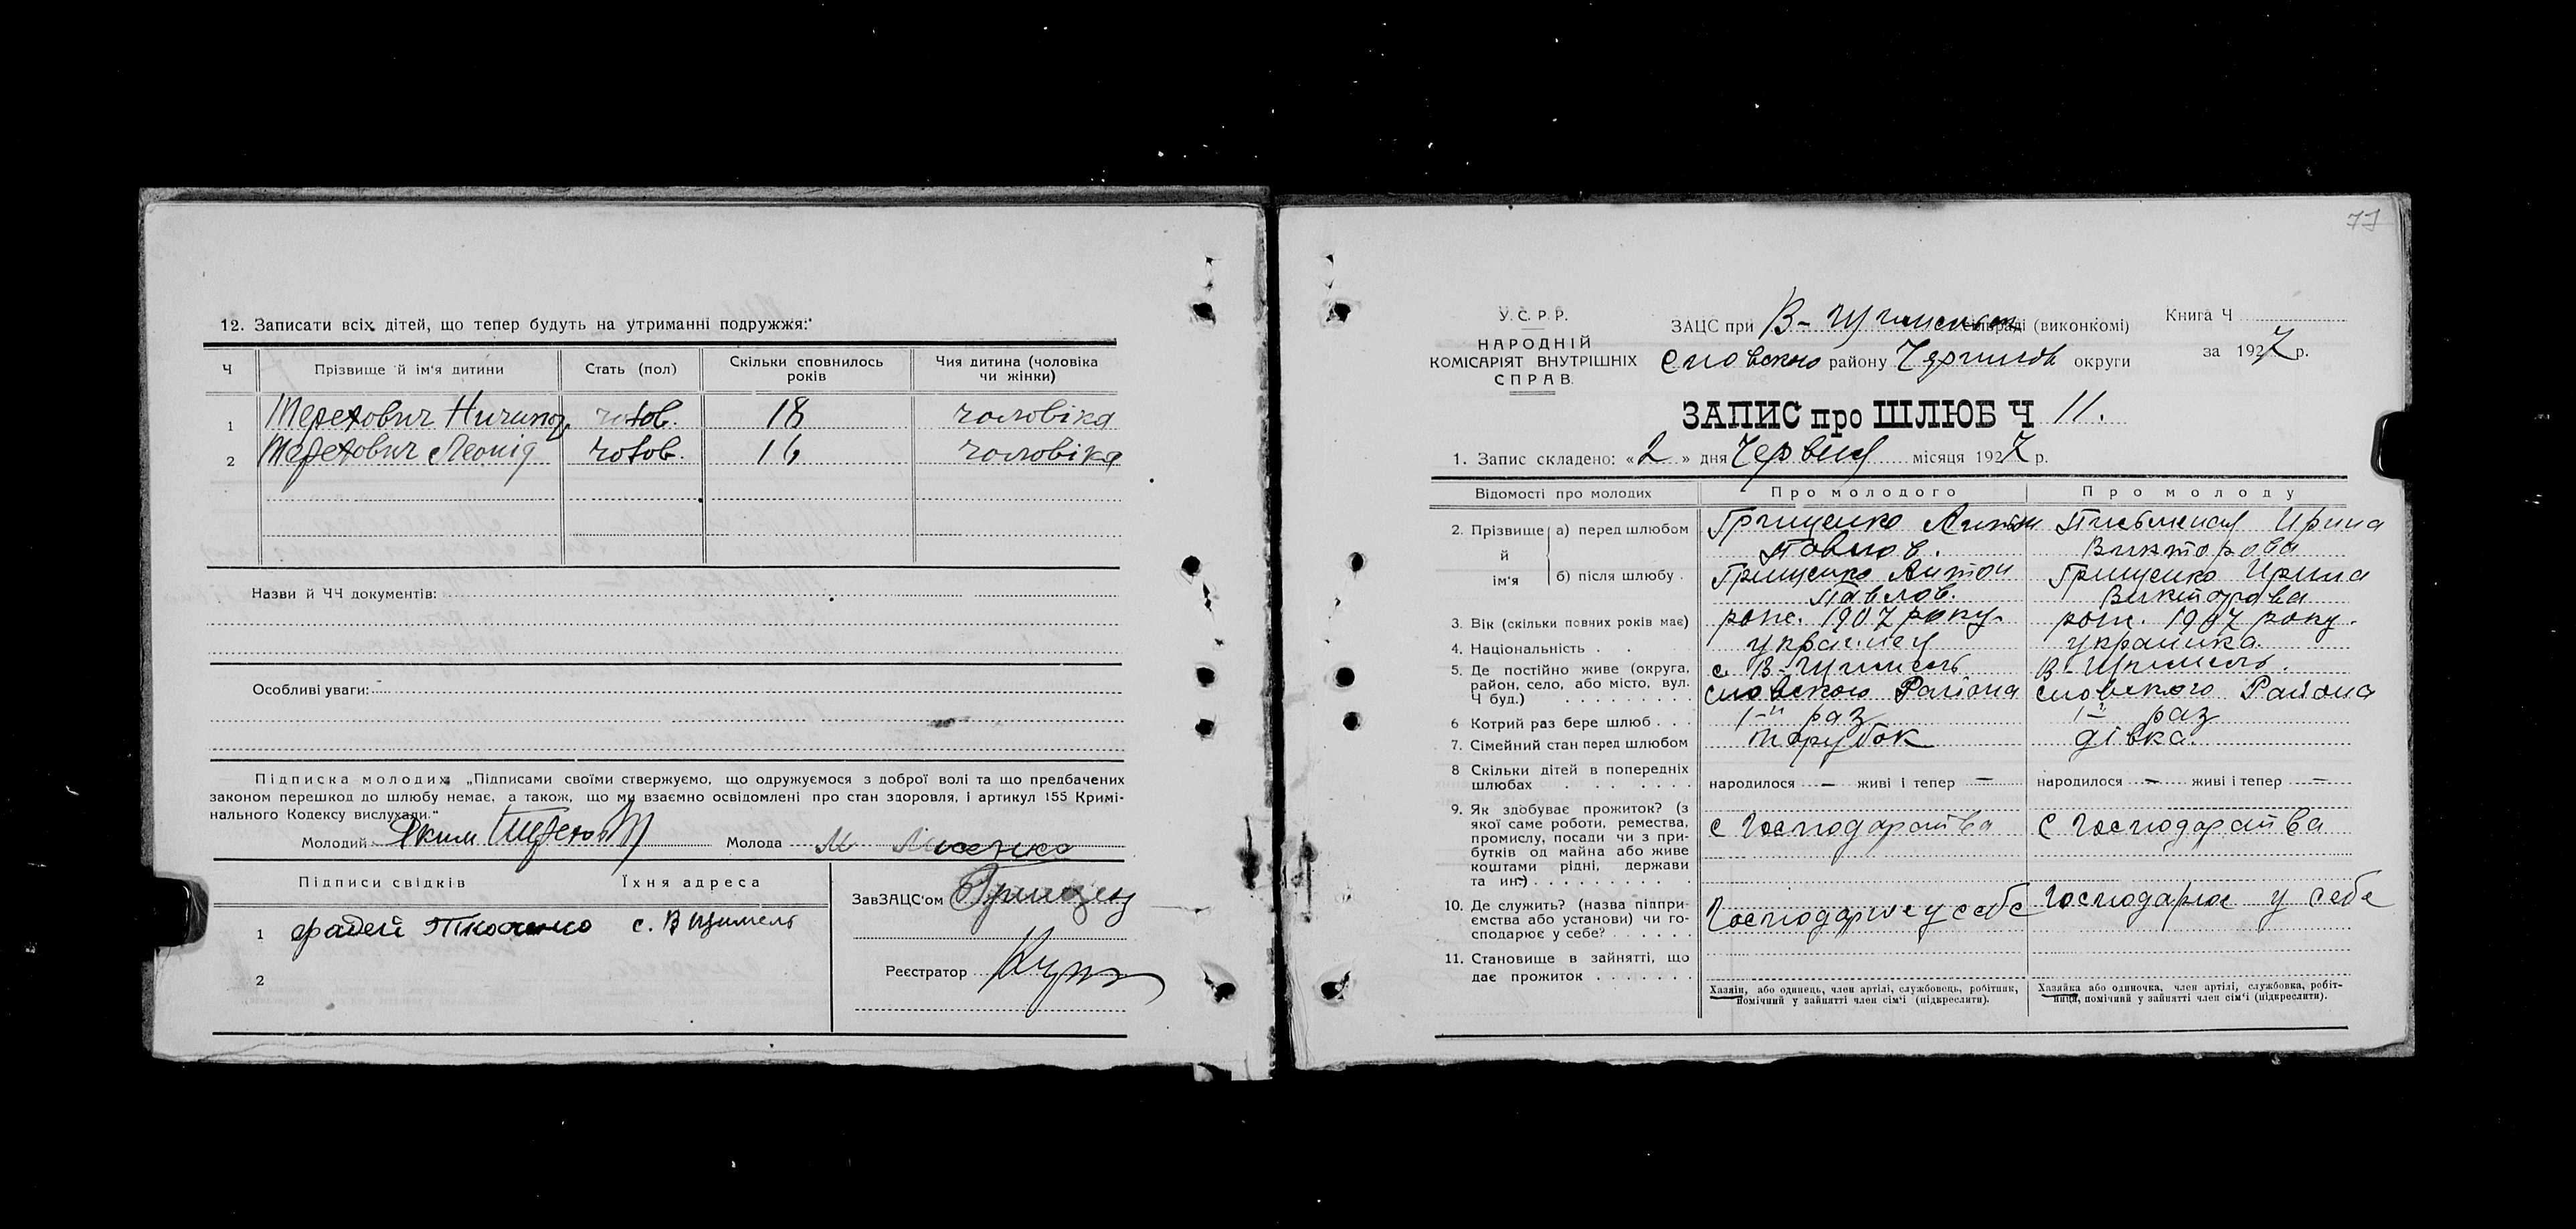 12. Записати всіх дітей, що тепер будуть на утриманні подружжя:
Ч Прізвище й ім'я дитини Стать (пол) Скільки сповнилось років Чия дитина (чоловіка чи жінки)
1 Терехович чолов. 18 чоловіка
2 Терехович Леонід чолов. 16 чоловіка
Назви й ЧЧ документів:
Особливі уваги:
Підписка молодих: „Підписами своїми стверджуємо, що одружуємося з доброї волі та що предбачених
законом перешкод до шлюбу немає, а також, що ми взаємно освідомлені про стан здоровля, і артикул 155 Кримі-
нального Кодексу вислухали."
Молодий Яким Молода М
Підписи свідків Їхня адреса
1 Фадей Ткаченко с. В
2
ЗавЗАЦС'ом
Реєстратор
77
У.С.Р.Р.
НАРОДНІЙ
КОМІСАРІЯТ ВНУТРІШНІХ
СПРАВ.
ЗАЦС при В- сільраді (виконкомі)
району округи
Книга Ч
за 1927 р.
ЗАПИС про ШЛЮБ Ч 11.
1. Запис складено: «2» дня Червня місяця 1927 р.
Відомості про молодих Про молодого Про молоду
2. Прізвище й ім'я а) перед шлюбом Грищенко Антон Павлов. Письменая Ирина Викторова
б) після шлюбу Грищенко Антон Павлов. Грищенко Ирина Викторова
3. Вік (скільки повних років має) рож. 1907 року. рож. 1907 року.
4. Національність українец українка.
5. Де постійно живе (округа,
район, село, або місто, вул.
Ч буд.)
с. В- Района
В- Района
6 Котрий раз бере шлюб 1-й раз 1-й раз
7. Сімейний стан перед шлюбом парубок дівка.
8 Скільки дітей в попередніх
шлюбах
народилося — живі і тепер — народилося — живі і тепер —
9. Як здобуває прожиток? (з
якої саме роботи, ремества,
промислу, посади чи з при-
бутків од майна або живе
коштами рідні, держави
та ин.)
с Господарства с Господарства
10. Де служить? (назва підпри-
ємства або установи) чи го-
сподарює у себе?
Господарює у себе Господарює у себе
11. Становище в зайнятті, що
дає прожиток
Хазяїн, або одинець, член артілі, службовець, робітник,
помічний у зайнятті член сім'ї (підкреслити).
Хазяйка або одиночка, член артілі, службовка, робіт-
ниця, помічний у зайнятті член сім'ї (підкреслити).